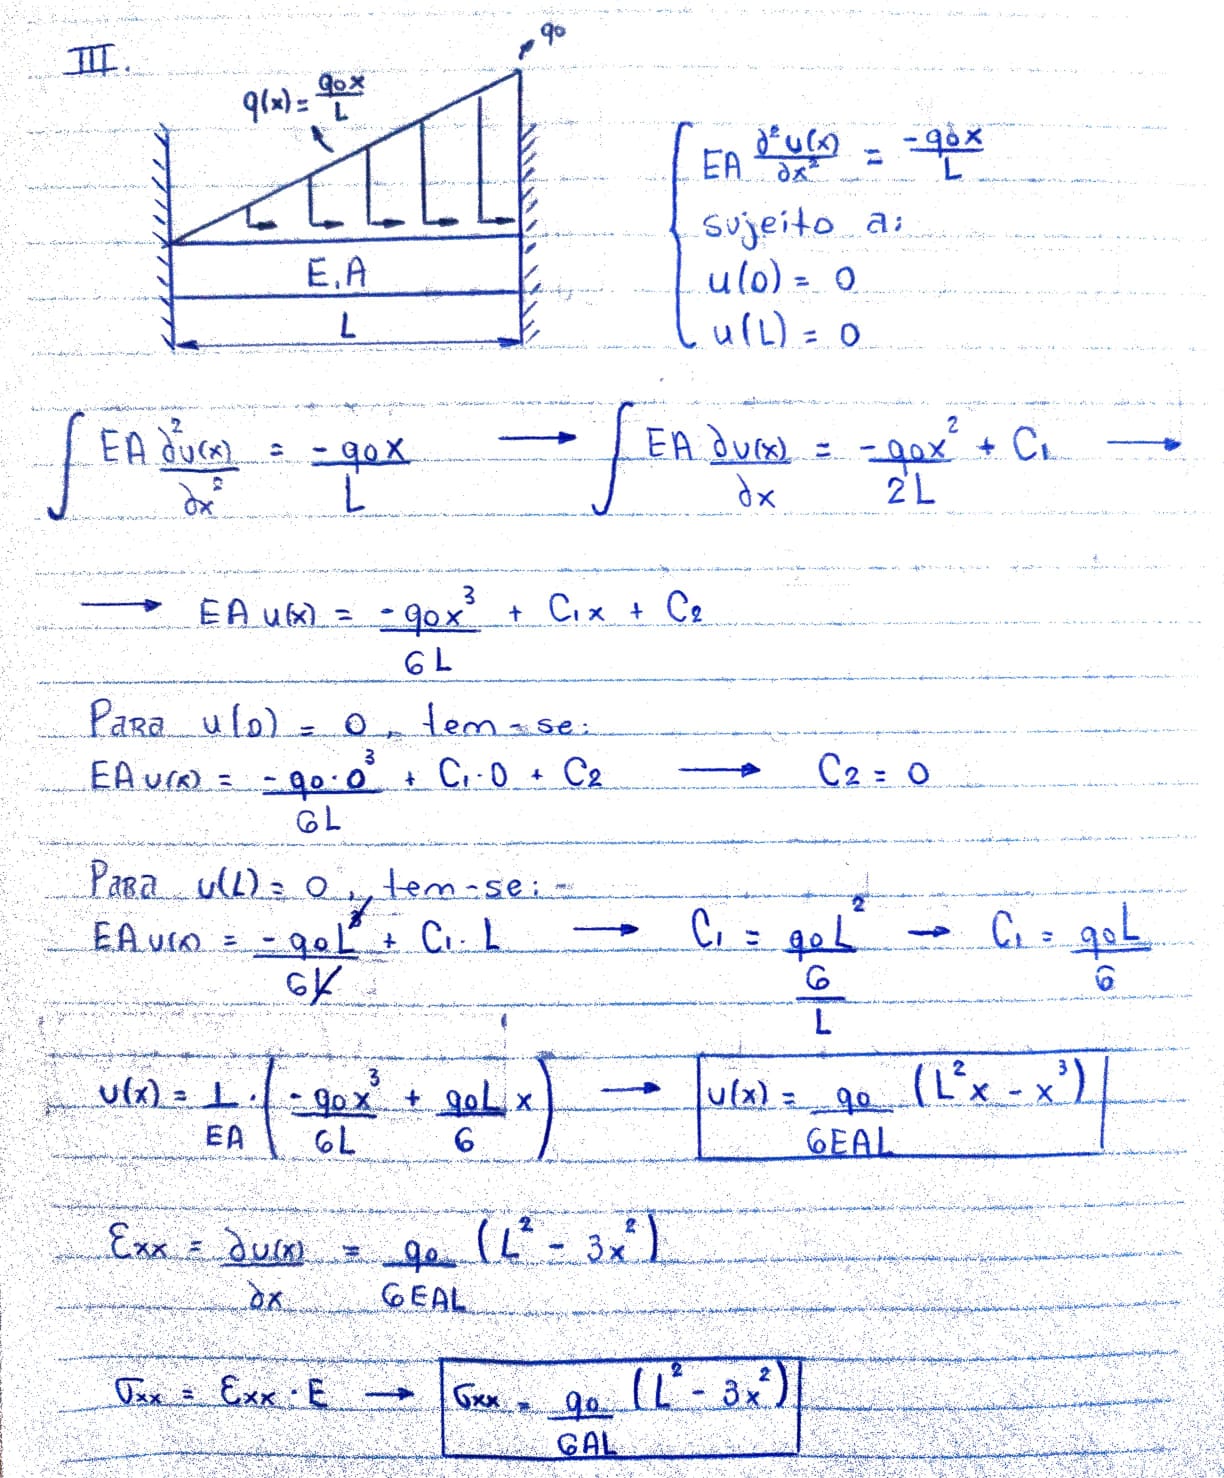 III.
q0
q(x) = q0x/L
E, A
L
EA ∂²u(x)/∂x² = -q0x/L
sujeito a:
u(0) = 0
u(L) = 0
∫ EA ∂²u(x)/∂x² = -q0x/L → ∫ EA ∂u(x)/∂x = -q0x²/2L + C1 →
→ EA u(x) = -q0x³/6L + C1x + C2
Para u(0) = 0, tem-se:
EA u(x) = -q0·0³/6L + C1·0 + C2 → C2 = 0
Para u(L) = 0, tem-se:
EA u(x) = -q0L³/6L + C1·L → C1 = q0L²/6/L → C1 = q0L/6
u(x) = 1/EA · (-q0x³/6L + q0L/6 x) → u(x) = q0/6EAL (L²x - x³)
Ɛxx = ∂u(x)/∂x = q0/6EAL (L² - 3x²)
σxx = Ɛxx · E → σxx = q0/6AL (L² - 3x²)